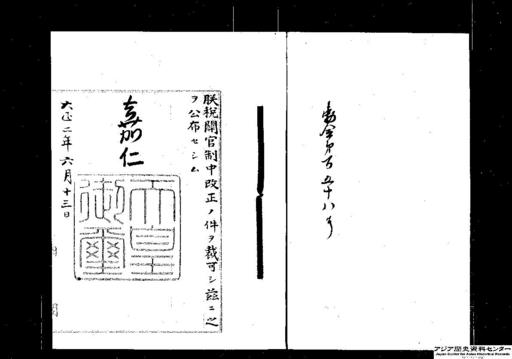 勅令第百五十八号
朕税關官制中改正ノ件ヲ裁可シ茲ニ之
ヲ公布セシム
嘉仁
天皇御璽
大正二年六月十三日
アジア歴史資料センター
Japan Center for Asian Historical Records